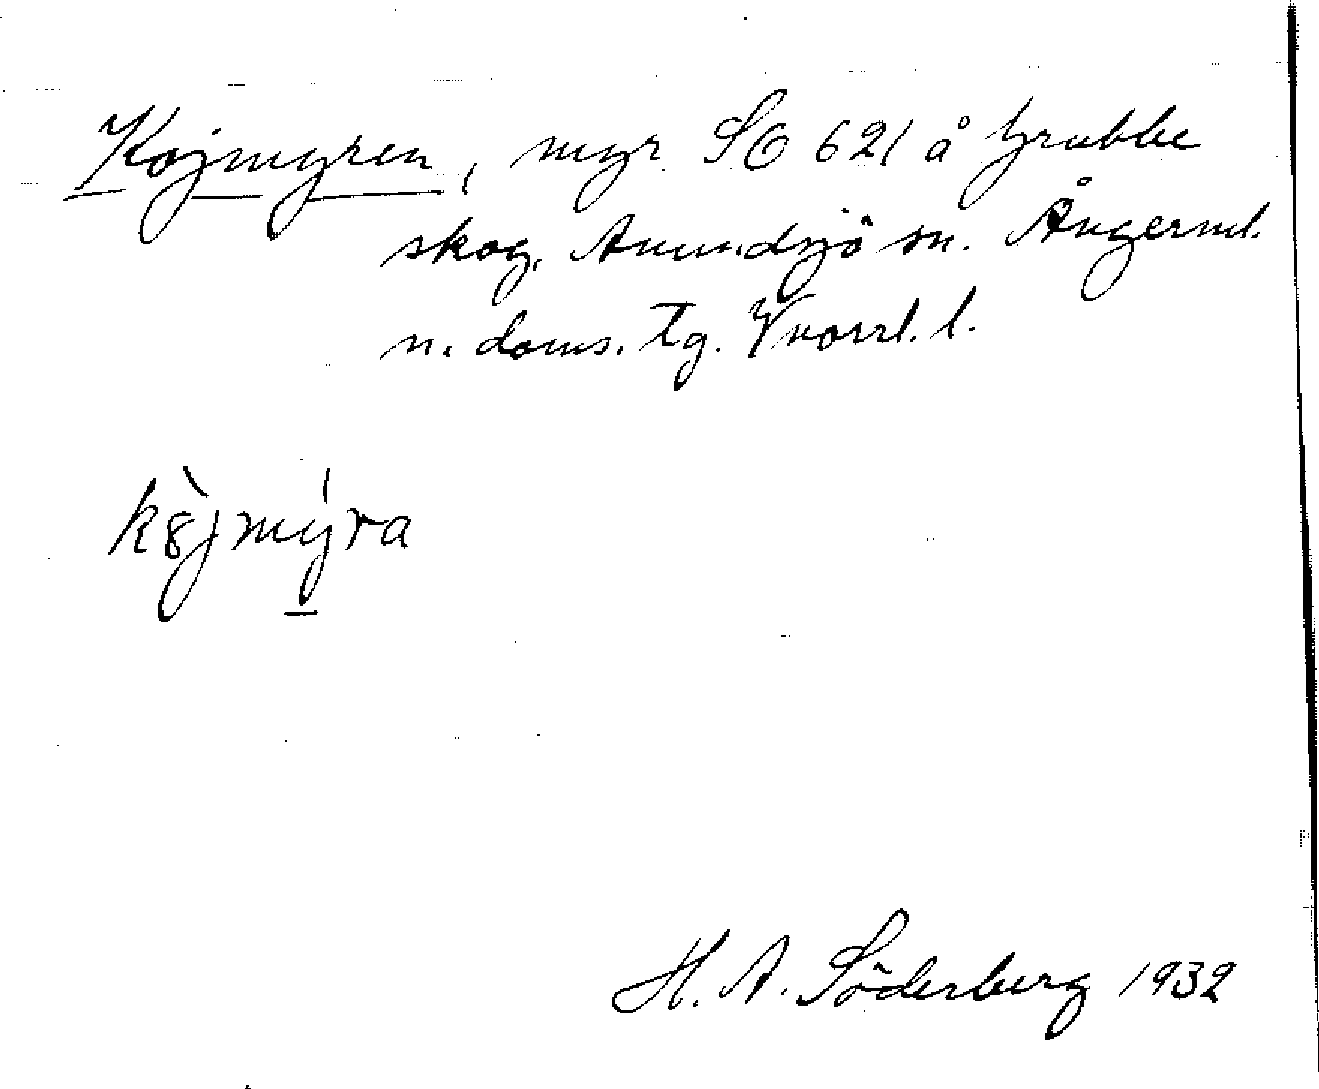 Kojmyren, myr. SO 621 å Grubbe
skog, Anundsjö sn. Ångerml.
n. doms. tg. Vnorrl. l.
kòjmýra
H. A. Söderberg 1932